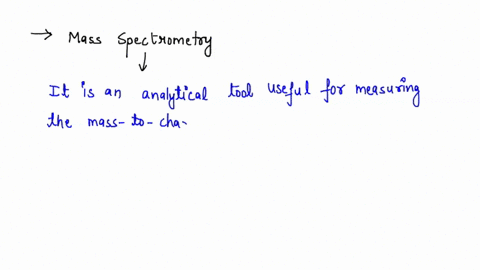 → Mass Spectrometry
↓
It is an analytical tool useful for measuring
the mass-to-cha-